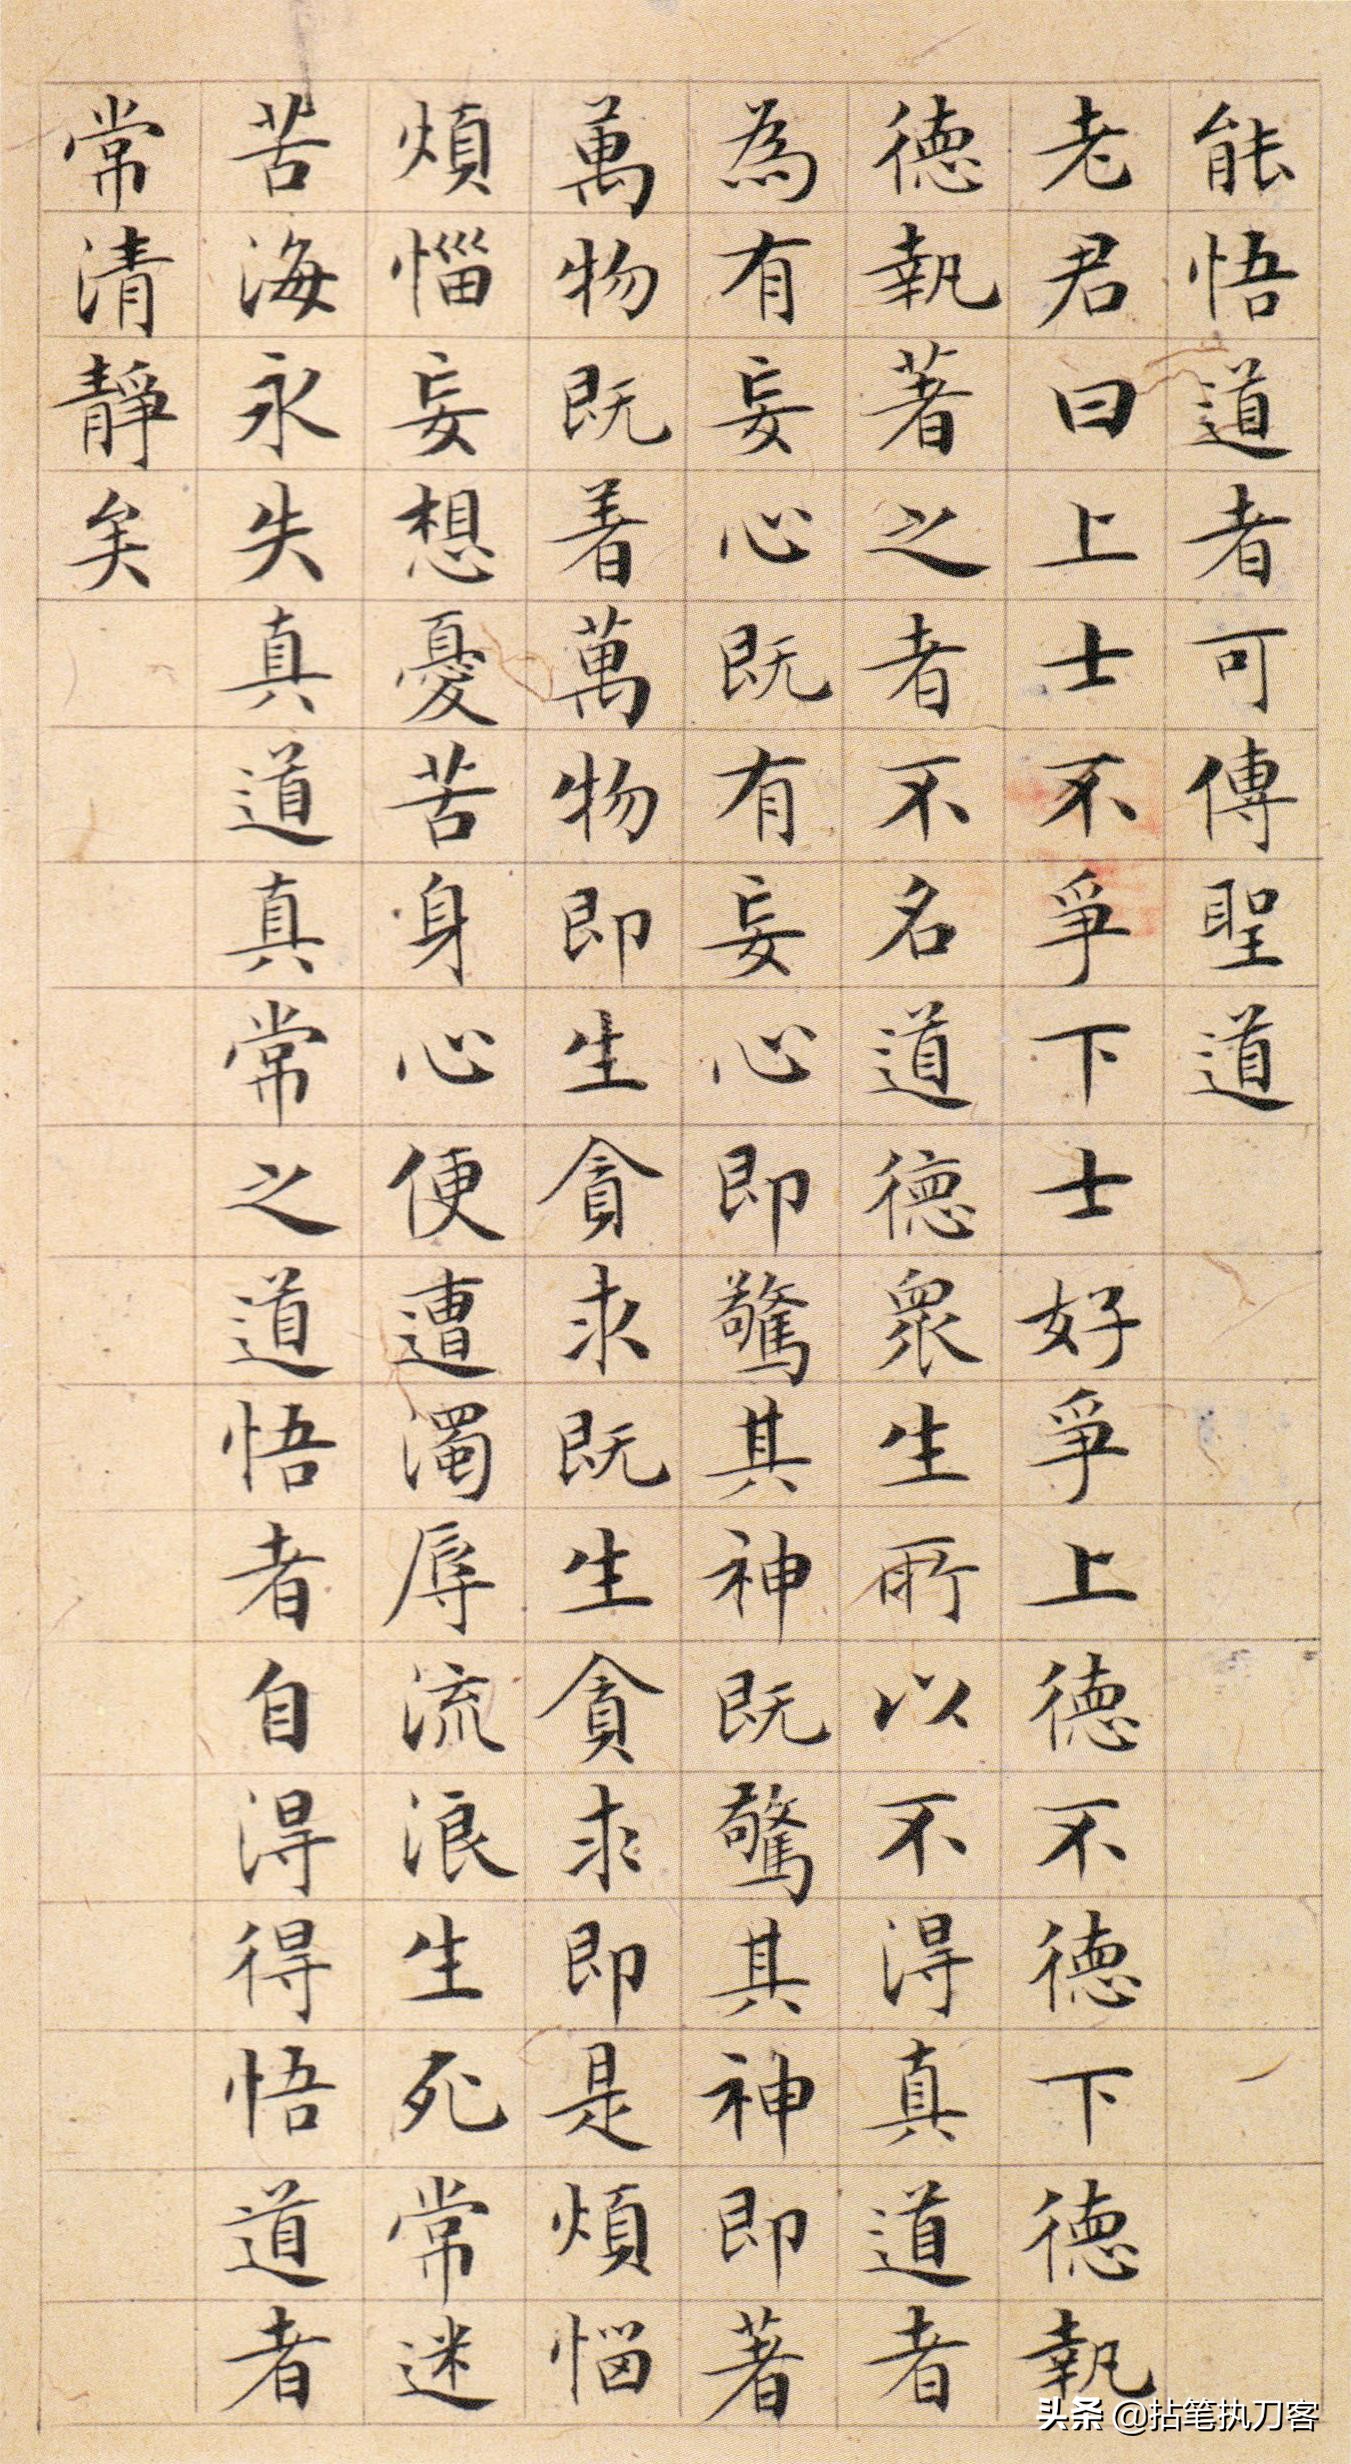 能悟道者可傳聖道
老君曰上士不爭下士好爭上德不德下德執
德執著之者不名道德眾生所以不得真道者
為有妄心既有妄心即驚其神既驚其神即著
萬物既着萬物即生貪求既生貪求即是煩惱
煩惱妄想憂苦身心便遭濁辱流浪生死常迷
苦海永失真道真常之道悟者自得得悟道者
常清靜矣
头条 @拈笔执刀客